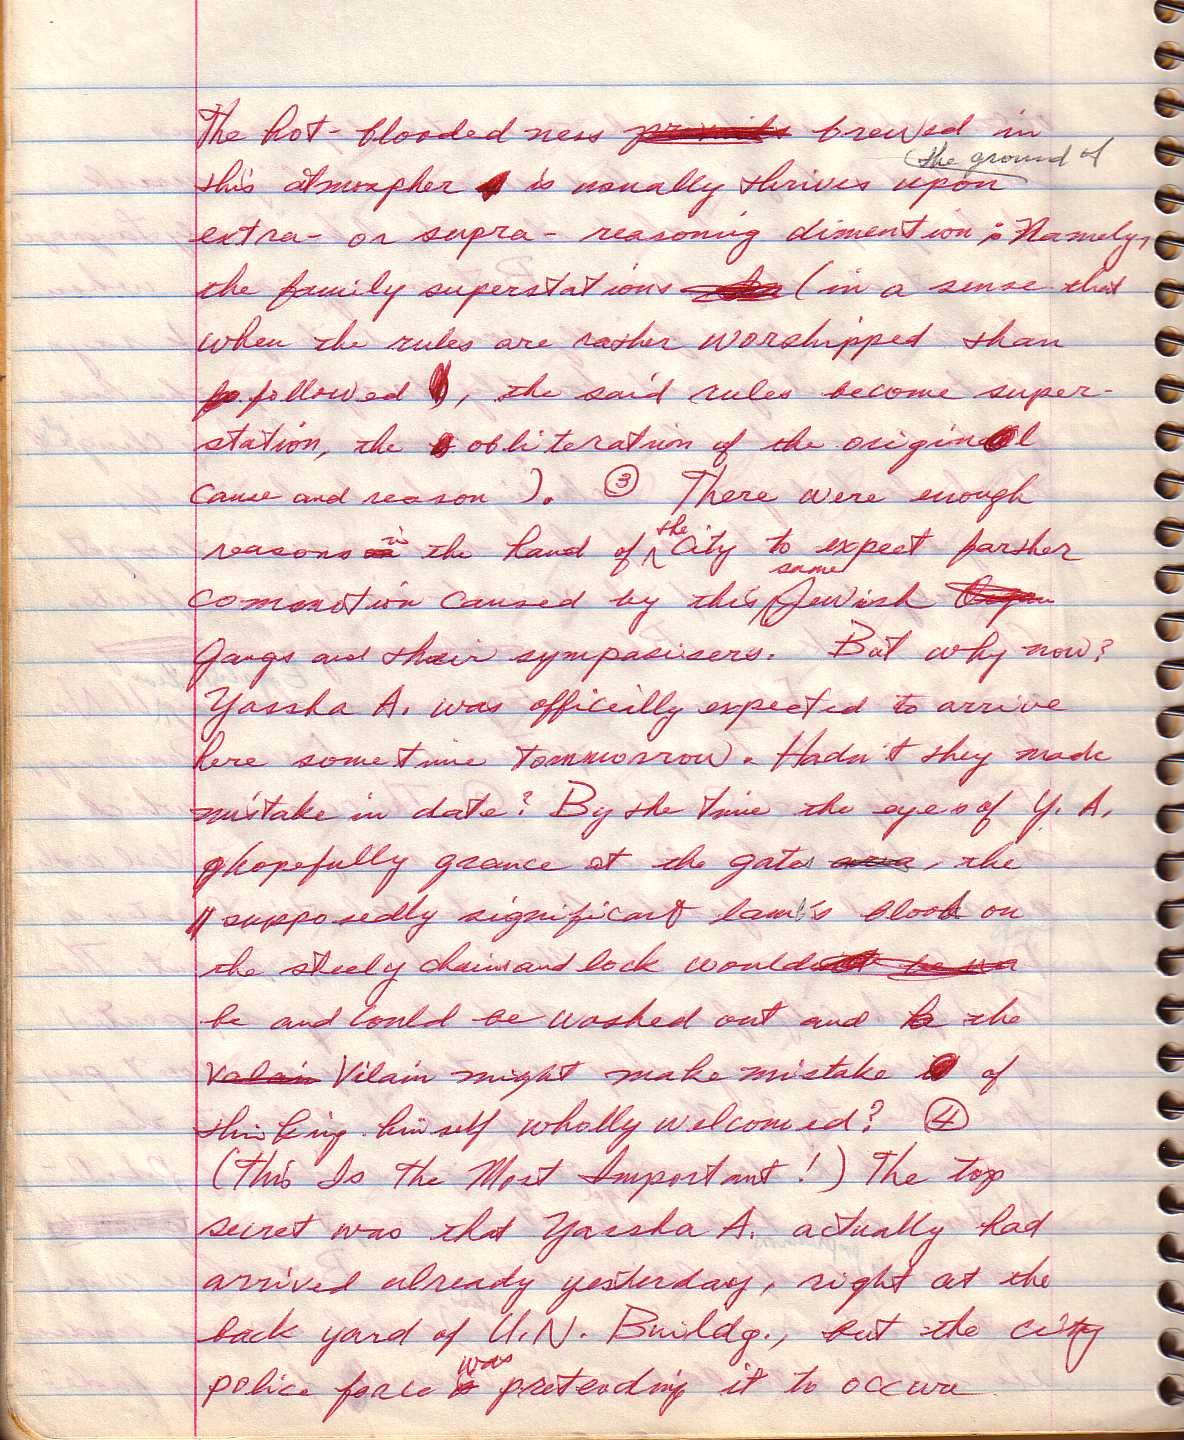 The hot-blooded ness brewed in
the ground of
this atmospher is usually thrives upon
extra- or supra- reasoning dimention; Namely,
the family superstations (in a sense that
when the rules are rather worshipped than
followed, the said rules become super-
station, the obliteration of the original
cause and reason). ③ There were enough
reasons in the hand of the City to expect farther
commotion caused by this same Jewish
gangs and their sympasisers. But why now?
Yassha A. was officeilly expected to arrive
here sometime tommorrow. Hadn't they made
mistake in date? By the time the eyes of Y. A.
hopefully grance at the gates, the
supposedly significant lamb's blood on
the steely chains and lock would
be and could be washed out and the
Vilain might make mistake of
thinking himself wholly welcomed? ④
(This Is The Most Important!) The top
secret was that Yassha A. actually had
arrived already yesterday, right at the
back yard of U.N. Buildg., but the city
police force was pretending it to occure